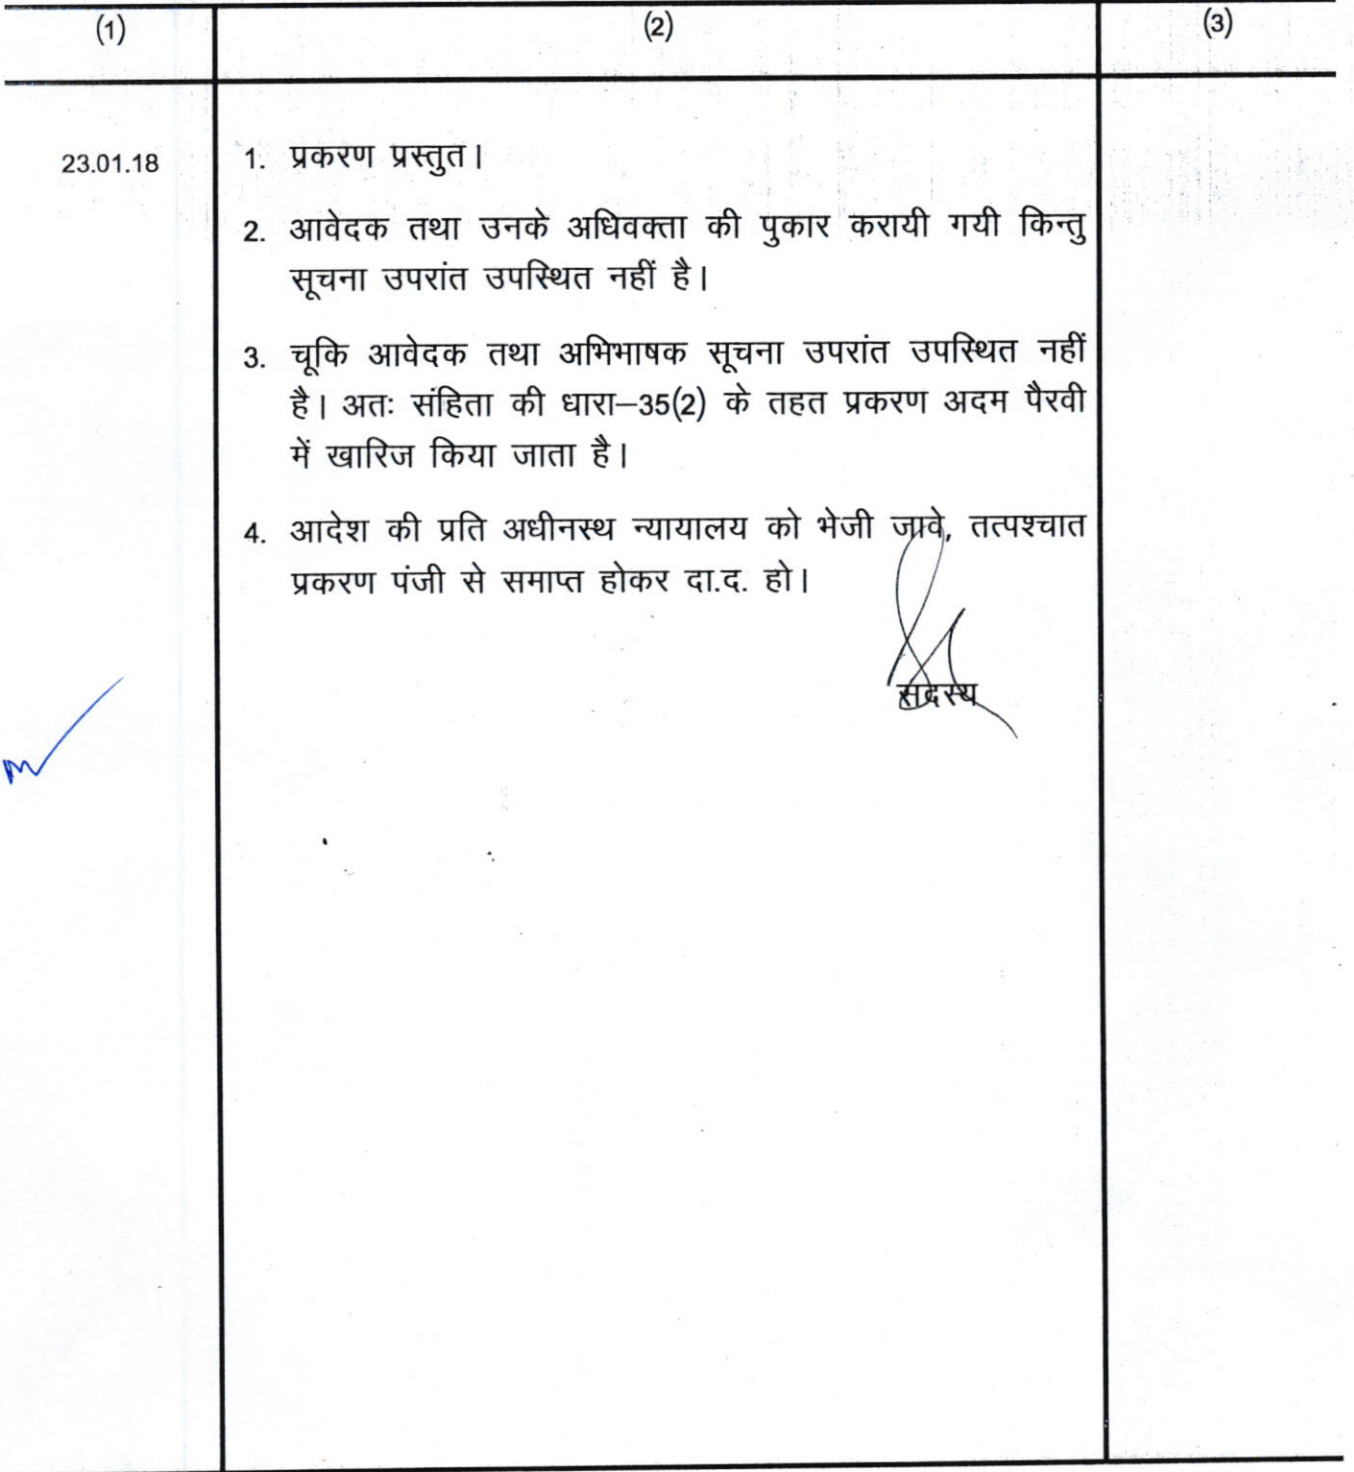 (1) (2) (3)
23.01.18 1. प्रकरण प्रस्तुत।
2. आवेदक तथा उनके अधिवक्ता की पुकार करायी गयी किन्तु
सूचना उपरांत उपस्थित नहीं है।
3. चूकि आवेदक तथा अभिभाषक सूचना उपरांत उपस्थित नहीं
है। अतः संहिता की धारा–35(2) के तहत प्रकरण अदम पैरवी
में खारिज किया जाता है।
4. आदेश की प्रति अधीनस्थ न्यायालय को भेजी जावे, तत्पश्चात
प्रकरण पंजी से समाप्त होकर दा.द. हो।
सदस्य